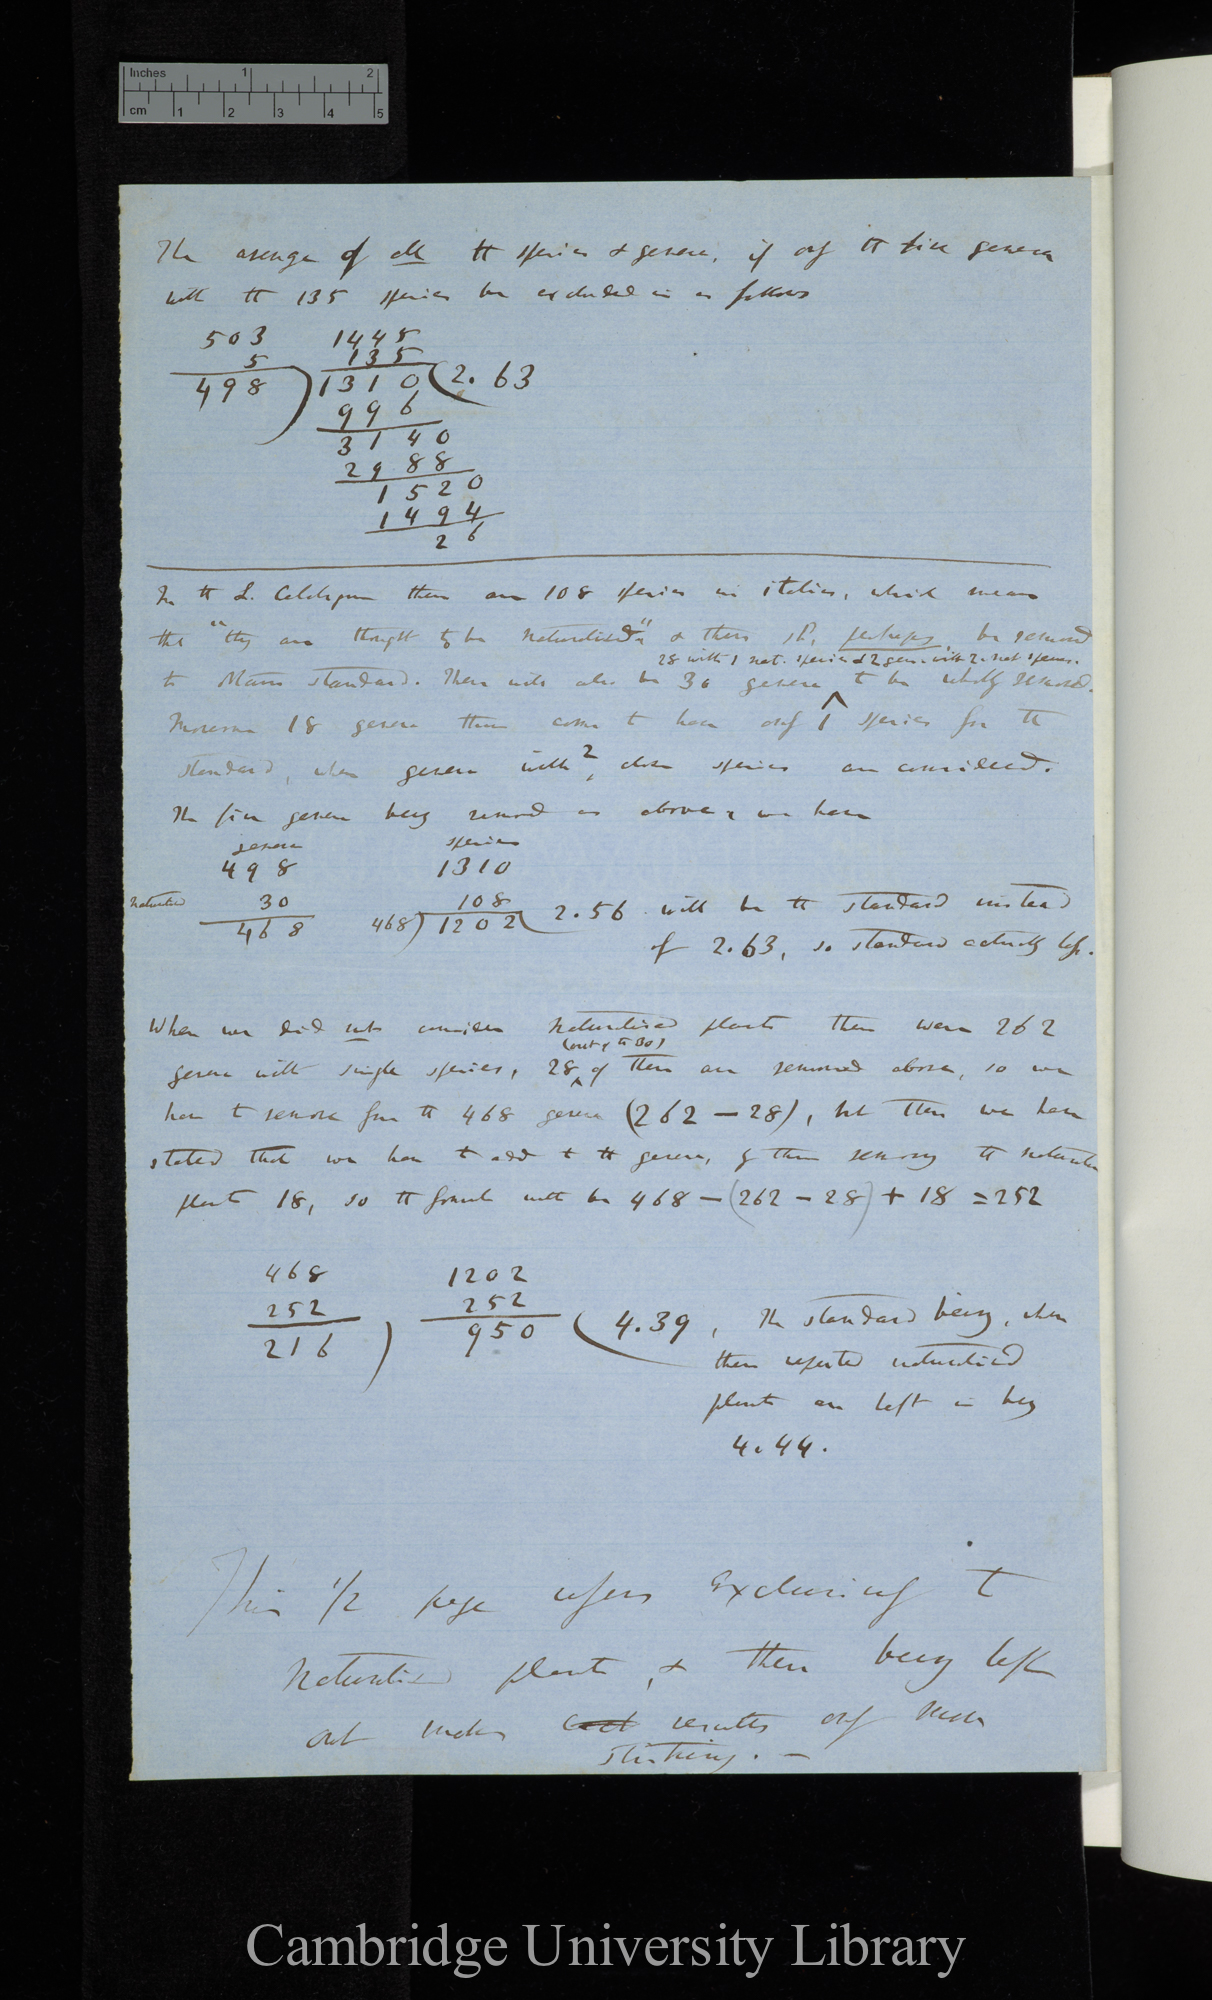 Inches 1 2
cm 1 2 3 4 5
The average of all the species & genera, if only the five genera
with the 135 species be excluded is as follows
503 1448
5 135
498 ) 1310 ( 2.63
996
3140
2988
1520
1494
26
In the L. Catalogue there are 108 species in italics, which means
that "they are thought to be naturalised" & these shd. perhaps, be removed
28 with 1 nat. species & 2 gen. with 2 nat species.
to Main standard. There will also be 30 genera ^ to be wholly removed.
Moreover 18 genera then come to have only 1 species for the
standard, when genera with 2, close species are considered.
The five genera being removed as above, we have
genera species
498 1310
Naturalised 30 108
468 468) 1202 ( 2.56 will be the standard instead
of 2.63, so standard actually less.
When we did not consider naturalised plants there were 262
(out of the 30)
genera with single species, 28 ^ of these are removed above, so we
have to remove from the 468 genera (262 — 28), but then we have
stated that we have to add to the genera, by thus removing the naturalised
plants 18, so the formula will be 468 — (262 — 28) + 18 = 252
468 1202
252 252
216 ) 950 ( 4.39, The standard being, when
these reputed naturalised
plants are left in being
4.44.
This 1/2 page refers exclusively to
Naturalised plants, & these being left
out makes results only more
striking. —
Cambridge University Library